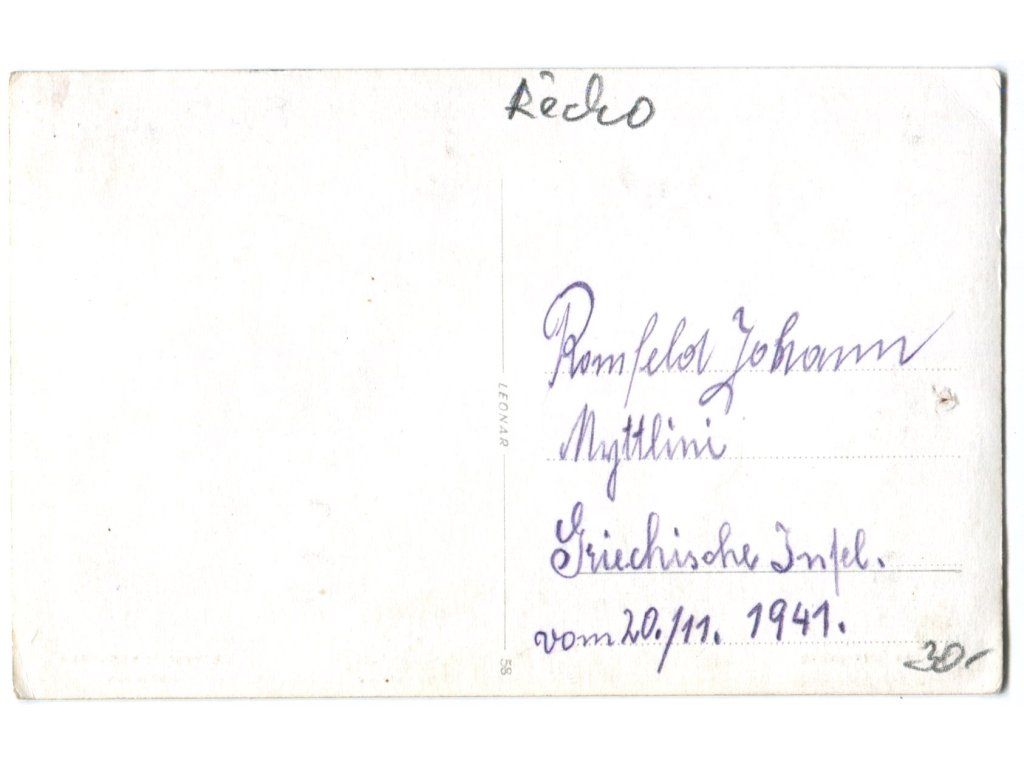 Řecko
Romfeld Johann
Myttlini
Griechische Insel.
vom 20./11. 1941.
LEONAR
58
30,-